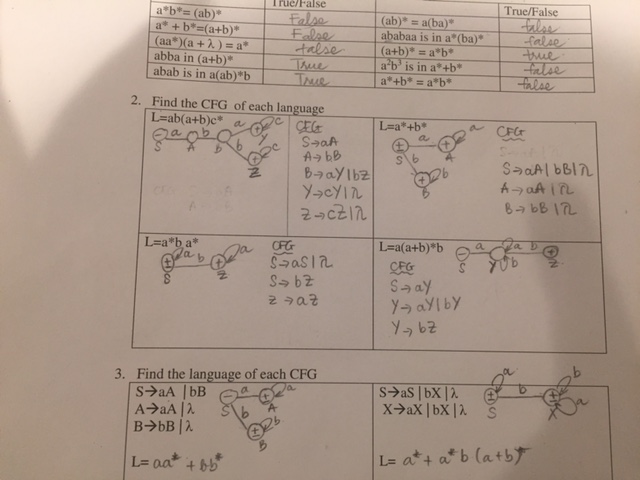 True/False
True/False
a*b* = (ab)*
False
(ab)* = a(ba)*
false
a* + b* =(a+b)*
False
ababaa is in a*(ba)*
false
(aa*)(a + λ) = a*
false
(a+b)* = a*b*
true
abba in (a+b)*
True
a²b³ is in a*+b*
false
abab is in a(ab)*b
True
a*+b* = a*b*
false
2. Find the CFG of each language
L=ab(a+b)c*
CFG
S→aA
A→bB
B→aY|bZ
Y→cY|λ
Z→cZ|λ
L=a*+b*
CFG
S→aA|bB|λ
A→aA|λ
B→bB|λ
L=a*b a*
CFG
S→aS|λ
S→bZ
Z→aZ
L=a(a+b)*b
CFG
S→aY
Y→aY|bY
Y→bZ
3. Find the language of each CFG
S→aA | bB
A→aA | λ
B→bB | λ
L= aa* + bb*
S→aS | bX | λ
X→aX | bX | λ
L= a* + a*b(a+b)*